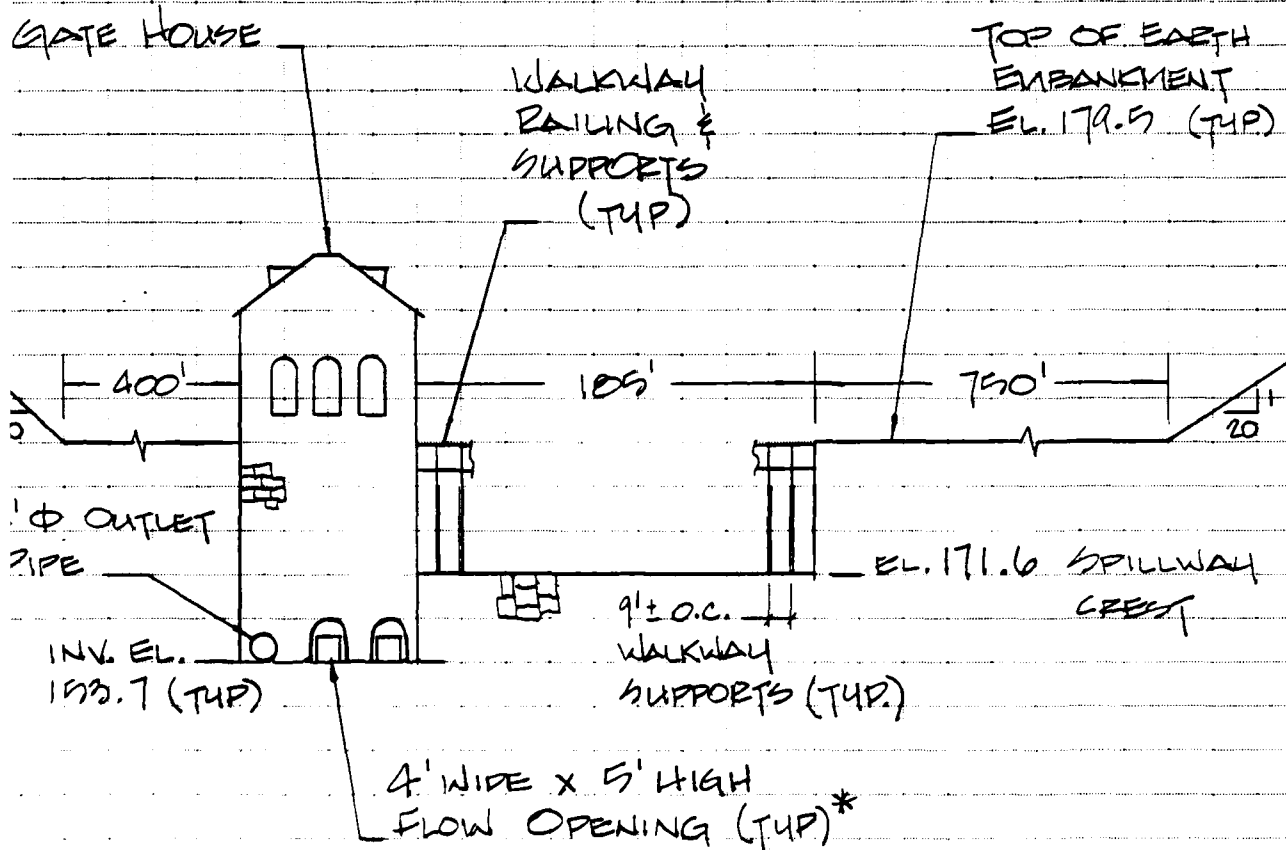 GATE HOUSE
WALKWAY
RAILING &
SUPPORTS
(TYP)
TOP OF EARTH
EMBANKMENT
EL. 179.5 (TYP)
400'
185'
750'
1
20
' Φ OUTLET
PIPE
INV. EL.
153.7 (TYP)
EL. 171.6 SPILLWAY
CREST
9'± O.C.
WALKWAY
SUPPORTS (TYP.)
4' WIDE x 5' HIGH
FLOW OPENING (TYP)*